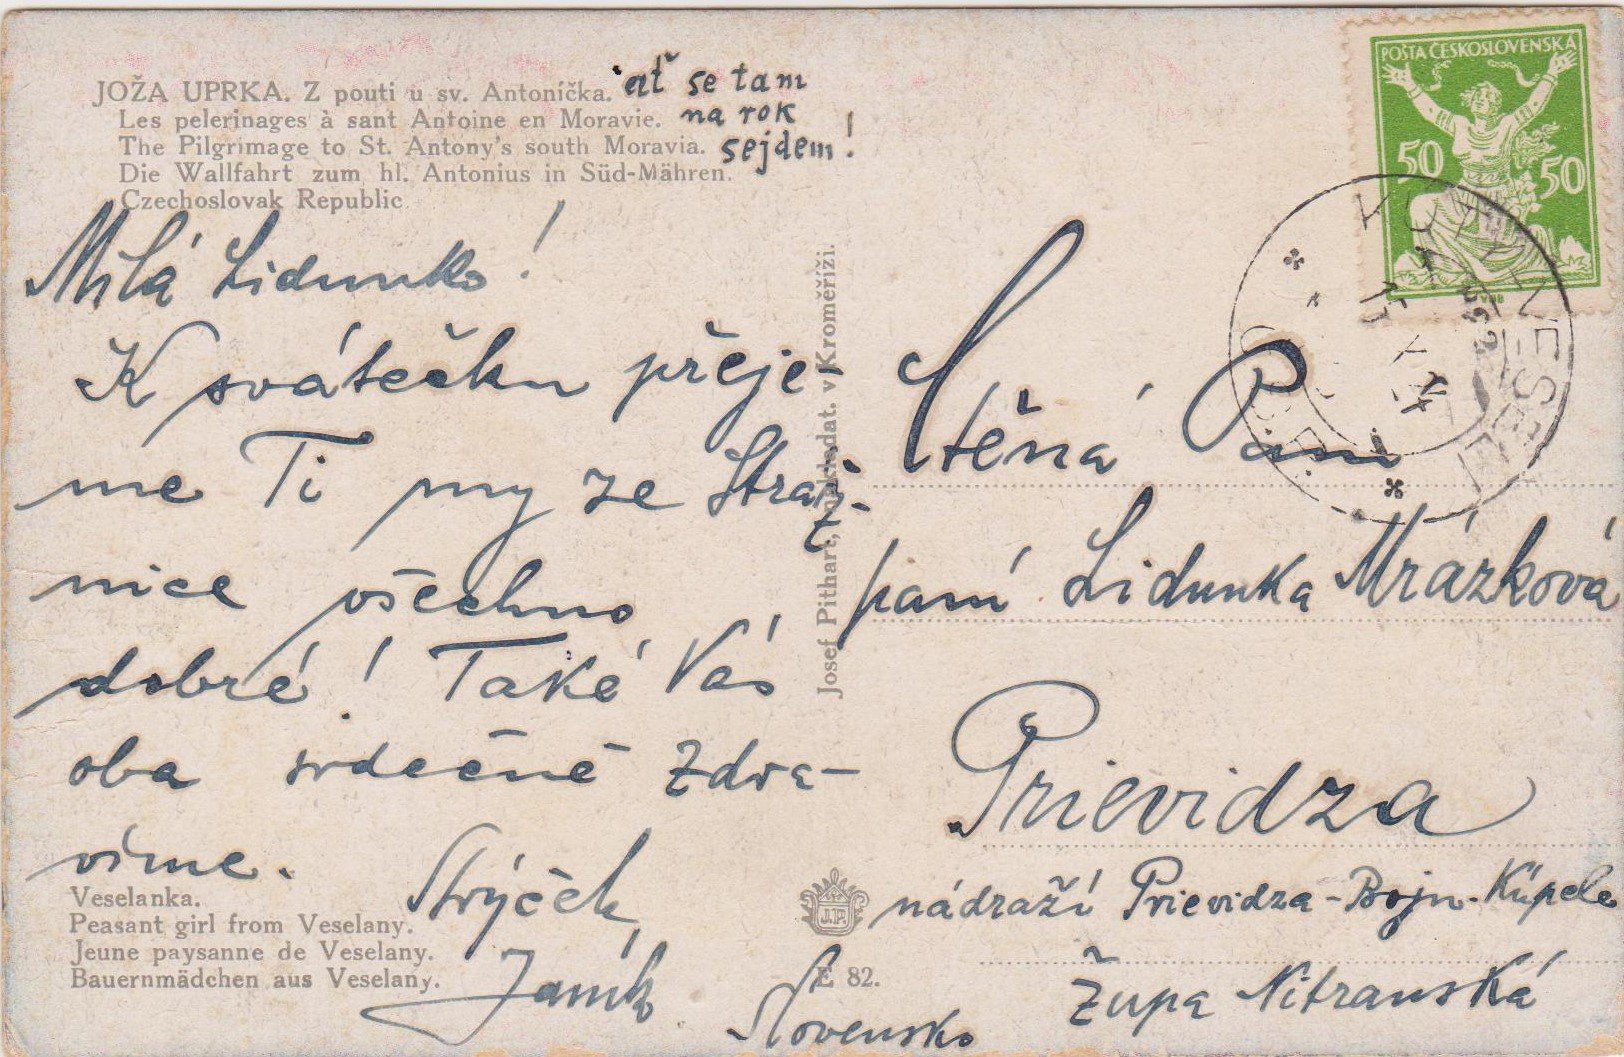 JOŽA UPRKA. Z pouti u sv. Antoníčka.
Les pelerinages à sant Antoine en Moravie.
The Pilgrimage to St. Antony's south Moravia.
Die Wallfahrt zum hl. Antonius in Süd-Mähren.
Czechoslovak Republic
ať se tam
na rok
sejdem!
Milá Lidunko!
K svátečku přeje-
me Ti my ze Stráž-
nice všechno
dobré! Také Vás
oba srdečně zdra-
víme.
Strýček
Janík
Veselanka.
Peasant girl from Veselany.
Jeune paysanne de Veselany.
Bauernmädchen aus Veselany.
Josef Pithart, nakladat. v Kroměříži.
J.P.
E 82.
POŠTA ČESKOSLOVENSKÁ
50 50
Ctěná Paní
paní Lidunka Mrázková
Prievidza
nádraží Prievidza-Bojn. Kúpele
župa Nitranská
Slovensko